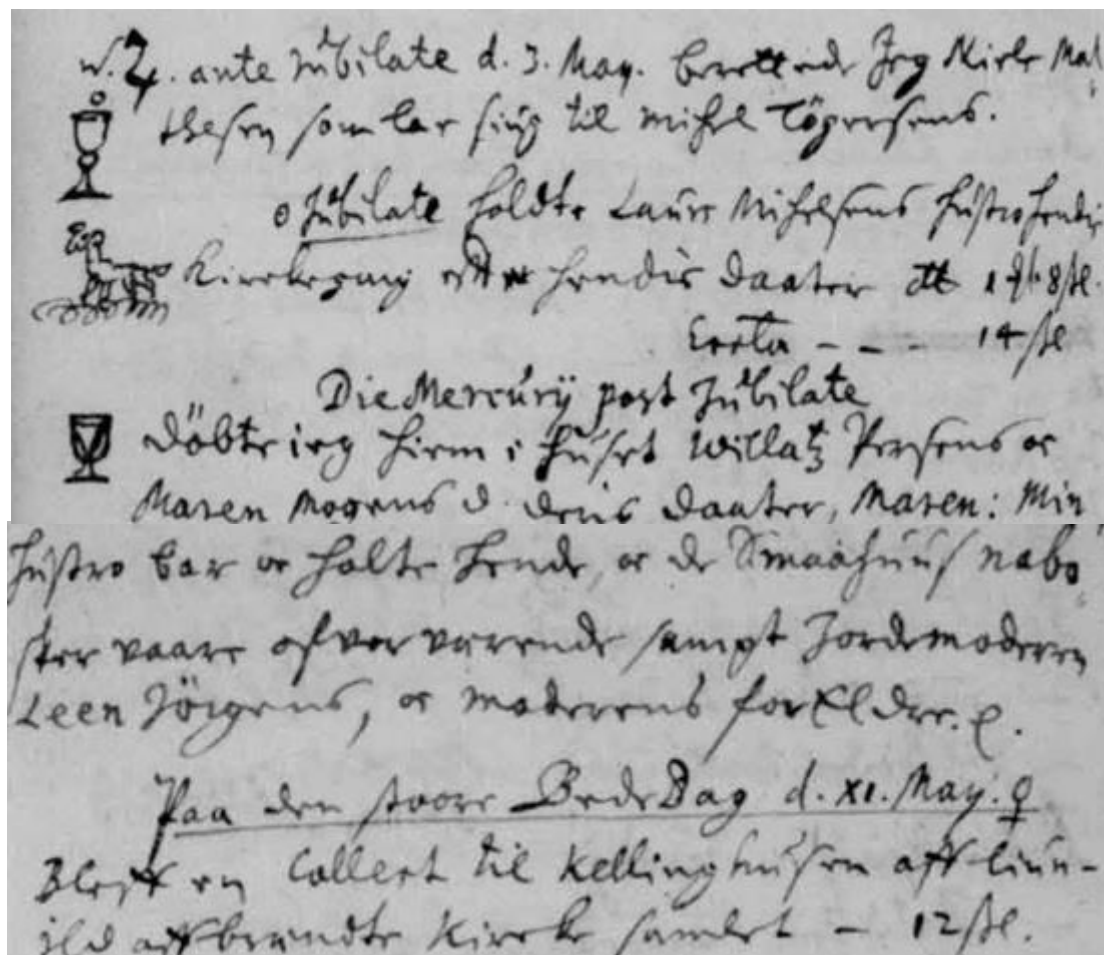 ante Jubilate d. 3. May. berettede Jeg Niels Mat
thesen som laae siug til Michel
Jubilate holdte Laurs Michelsens hustro hendis
Kirckegang efter hendis Daater 1 8 sk.
14 sk
Die Mercurij post Jubilate
Döbte ieg hiem i huset Willatz Persens oc
Maren Mogens d. deris Daater, Maren: Min
hustro bar oc holte hende, oc de Smaahuus nabo
ster vaare ofverværende sampt Jordemoderen
Leen Jörgens, oc moderens forældre.
Paa den stoore BedeDag d. XI. May. ♀
Bleff en Collect til Kellinghusen aff liun-
ild affbrendte Kircke samlet – 12 sk.